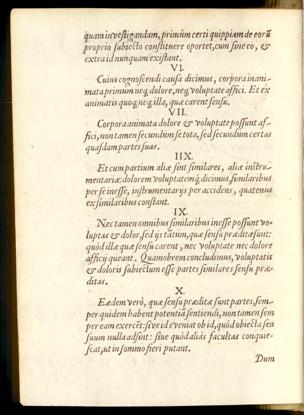 quam investigandam, primùm certi quippiam de eorũ
proprio subiecto constituere oportet, cum sine eo, &
extra id nunquam existant.
VI.
Cuius cognoscendi causa dicimus, corpora inani-
mata primùm neq; dolore, neq; voluptate affici. Et ex
animatis quoq; neq; illa, quæ carent sensu.
VII.
Corpora animata dolore & voluptate possunt af-
fici, non tamen secundùm se tota, sed secundùm certas
quasdam partes suas.
IIX.
Et cum partium aliæ sint similares, aliæ instru-
mentariæ: dolorem voluptatemq́; dicimus, similaribus
per se inesse, instrumentarijs per accidens, quatenus
ex similaribus constant.
IX.
Nec tamen omnibus similaribus inesse possunt vo-
luptas & dolor, sed ijs tãtùm, quæ sensu præditæ sunt:
quòd illæ quæ sensu carent, nec voluptate nec dolore
affici queant. Quamobrem concludimus, voluptatis
& doloris subiectum esse partes similares sensu præ-
ditas.
X.
Eædem verò, quæ sensu præditæ sunt partes, sem-
per quidem habent potentiã sentiendi, non tamen sem
per eam exercẽt: siue id eveniat ob id, quòd obiecta sen
suum nulla adsint: siue quòd aliàs facultas conquie-
scat, ut in somno fieri putant.
Dum